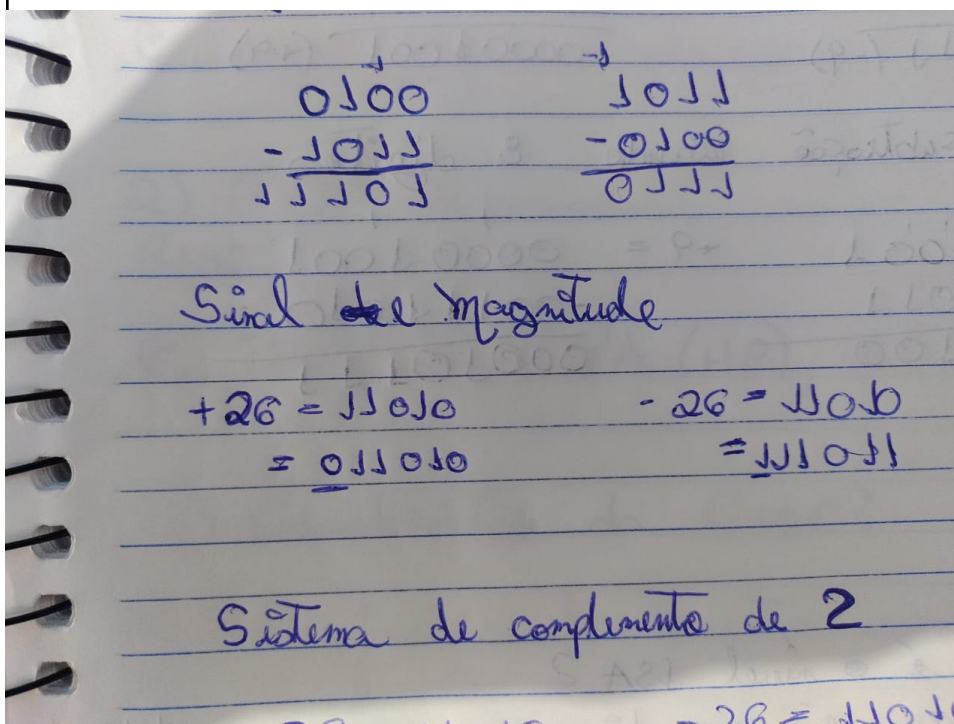 1 -1
0100 1011
- 1011 - 0100
11101 0111
Sinal e magnitude
+26 = 11010 - 26 = 11010
= 011010 = 111011
Sistema de complemento de 2
- 26 = 11010